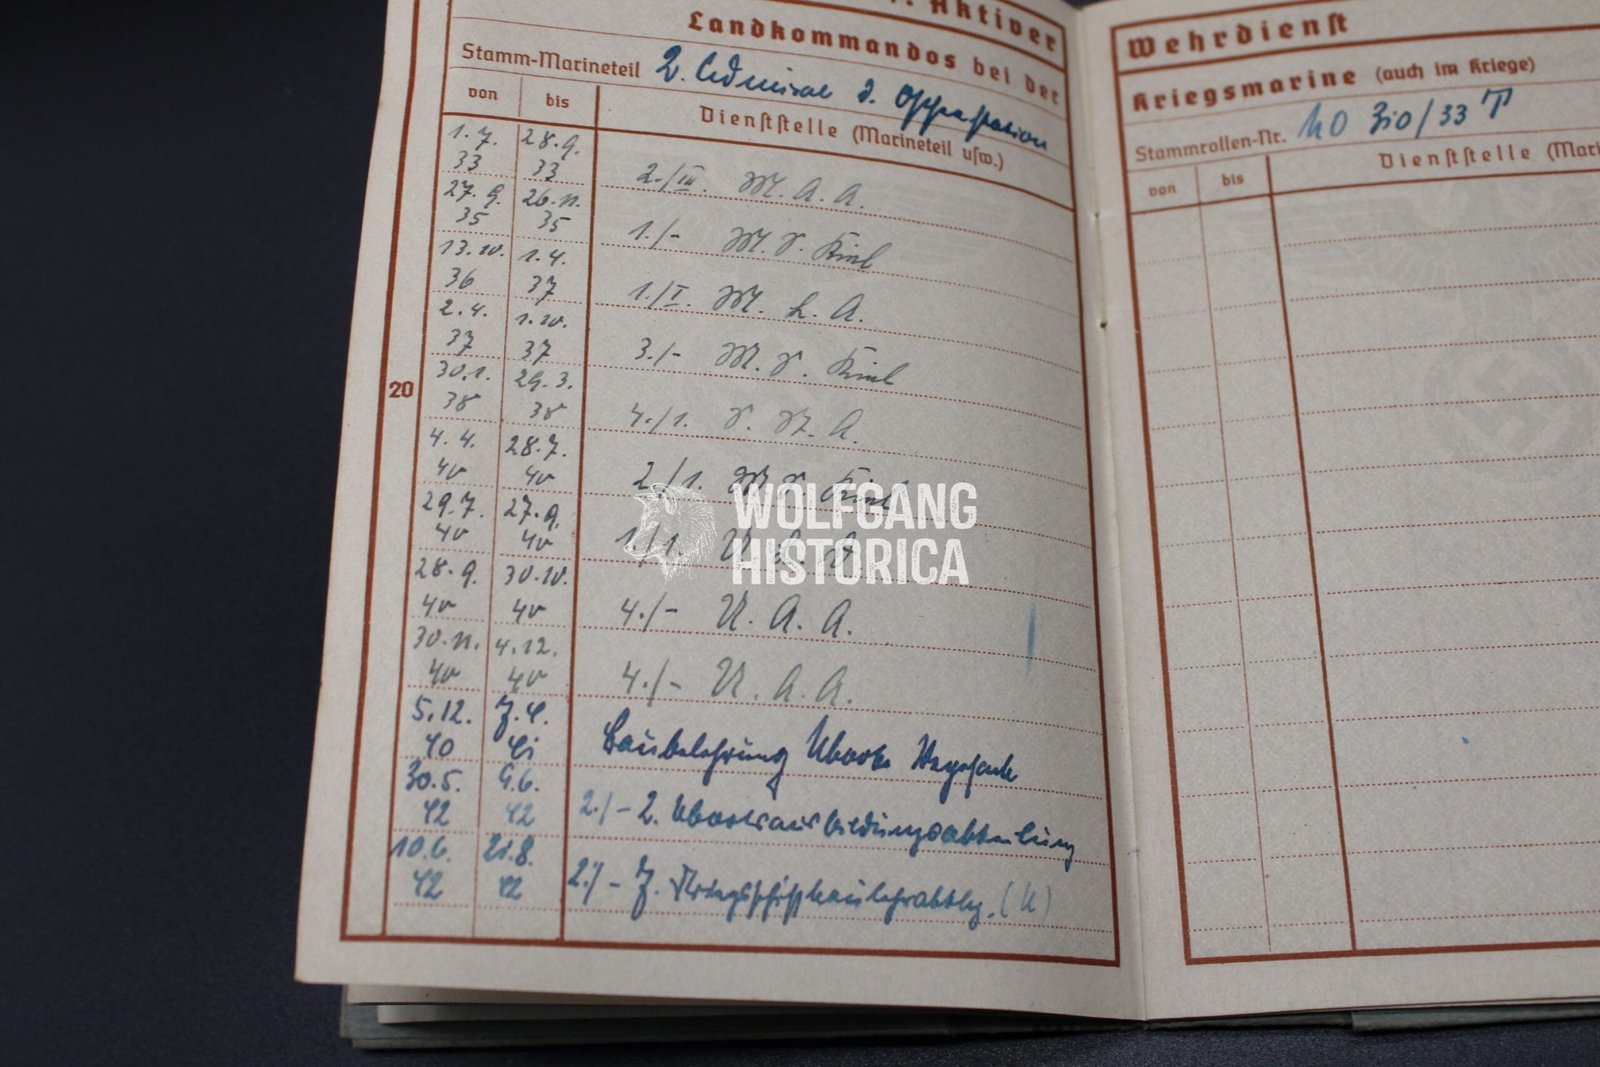 IV. Aktiver
Landkommandos bei der
Stamm-Marineteil 2. Admiral d. Ostseestation
von bis Dienststelle (Marineteil usw.)
1.7. 33 28.9. 33 2./III. M. A. A.
27.9. 35 26.11. 35 1./- M. S. Kiel
13.10. 36 1.4. 37 1./I. M. L. A.
2.4. 37 1.10. 37 3./- M. S. Kiel
30.1. 38 29.3. 38 4./1. S. St. A.
4.4. 40 28.7. 40 2./1. M. S. Kiel
29.7. 40 27.9. 40 1./1. U.
28.9. 40 30.10. 40 4./- U. A. A.
20
30.11. 40 4.12. 40 4./- U. A. A.
5.12. 40 7.4. 41 Baubelehrung Uboote Vegesack
30.5. 42 9.6. 42 2./- 2. Ubootsausbildungsabteilung
10.6. 42 21.8. 42 2./- 7. Kriegsschiffbaulehrabtlg. (U)
Wehrdienst
Kriegsmarine (auch im Kriege)
Stammrollen-Nr. NO 310/33 T
von bis Dienststelle (Mari
WOLFGANG
HISTORICA